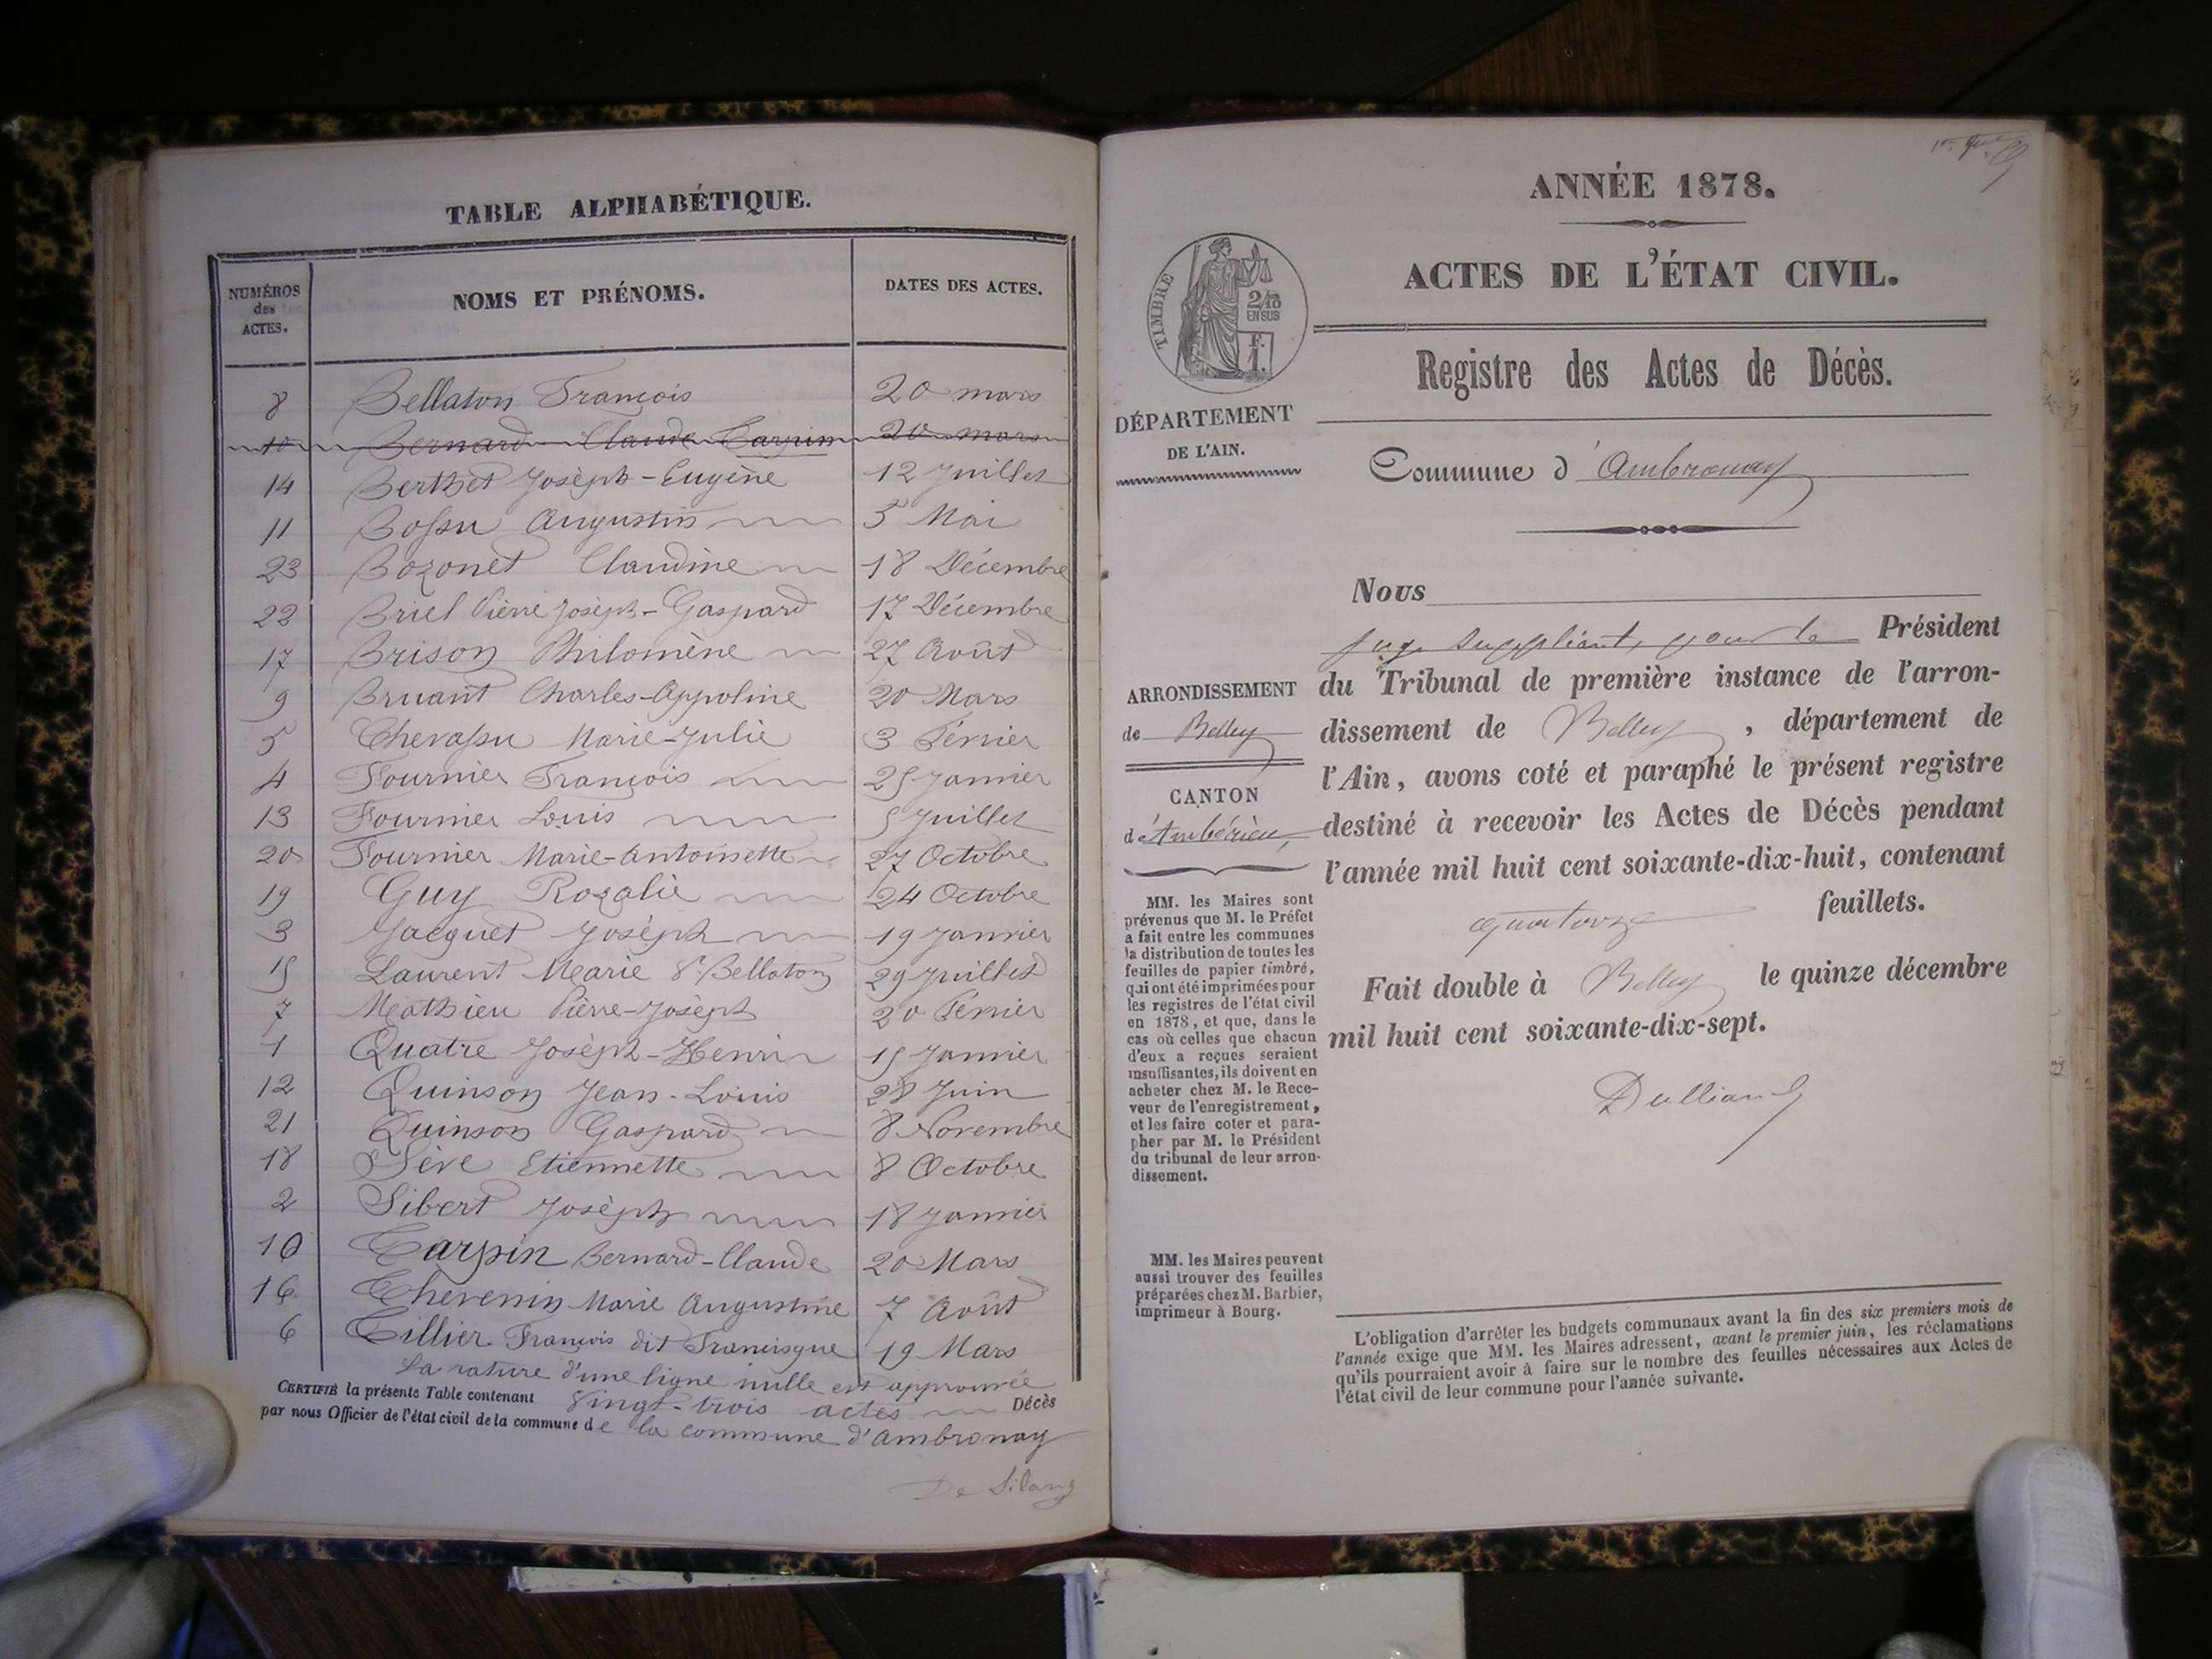 TABLE ALPHABÉTIQUE.
NUMÉROS des ACTES. NOMS ET PRÉNOMS. DATES DES ACTES.
8 Bellaton François 20 mars
10 Bernard Claude Tarpin 20 mars
14 Berthet Joseph-Eugène 12 Juillet
11 Bossu Augustin 5 Mai
23 Bozonet Claudine 18 Décembre
22 Briel Pierre Joseph-Gaspard 17 Décembre
17 Brison Philomène 27 Août
9 Bruant Charles-Appoline 20 Mars
5 Chevassu Marie-Julie 3 Février
4 Fournier François 25 Janvier
13 Fournier Louis 5 Juillet
20 Fournier Marie-Antoinette 27 Octobre
19 Guy Rozalie 24 Octobre
3 Jacquet Joseph 19 Janvier
15 Laurent Marie Vᵉ Bellaton 29 Juillet
7 Mathieu Pierre-Joseph 20 Février
1 Quatre Joseph-Henri 15 Janvier
12 Quinson Jean-Louis 28 Juin
21 Quinson Gaspard 8 Novembre
18 Sève Etiennette 8 Octobre
2 Sibert Joseph 18 Janvier
10 Tarpin Bernard-Claude 20 Mars
16 Thevenin Marie Augustine 7 Août
6 Tillier François dit Francisque 19 Mars
La rature d'une ligne nulle est approuvée
CERTIFIÉ la présente Table contenant Vingt-trois actes Décès
par nous Officier de l'état civil de la commune de la commune d'Ambronay
De Silans
ANNÉE 1878.
ACTES DE L'ÉTAT CIVIL.
TIMBRE
2/10
EN SUS
F.
1.
Registre des Actes de Décès.
DÉPARTEMENT
DE L'AIN.
Commune d'Ambronay
Nous
juge suppléant, pour le Président
du Tribunal de première instance de l'arron-
dissement de Belley, département de
l'Ain, avons coté et paraphé le présent registre
destiné à recevoir les Actes de Décès pendant
l'année mil huit cent soixante-dix-huit, contenant
quatorze feuillets.
Fait double à Belley le quinze décembre
mil huit cent soixante-dix-sept.
ARRONDISSEMENT
de Belley
CANTON
d'Ambérieu,
MM. les Maires sont
prévenus que M. le Préfet
a fait entre les communes
la distribution de toutes les
feuilles de papier timbré,
qui ont été imprimées pour
les registres de l'état civil
en 1878, et que, dans le
cas où celles que chacun
d'eux a reçues seraient
insuffisantes, ils doivent en
acheter chez M. le Rece-
veur de l'enregistrement,
et les faire coter et para-
pher par M. le Président
du tribunal de leur arron-
dissement.
MM. les Maires peuvent
aussi trouver des feuilles
préparées chez M. Barbier,
imprimeur à Bourg.
L'obligation d'arrêter les budgets communaux avant la fin des six premiers mois de
l'année exige que MM. les Maires adressent, avant le premier juin, les réclamations
qu'ils pourraient avoir à faire sur le nombre des feuilles nécessaires aux Actes de
l'état civil de leur commune pour l'année suivante.